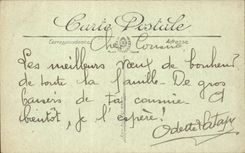 Carte Postale
Correspondance
Adresse
Les meilleurs vœux de bonheur
de toute la famille. De gros
baisers de ta cousine et
bientôt, je l'espère!
Odette